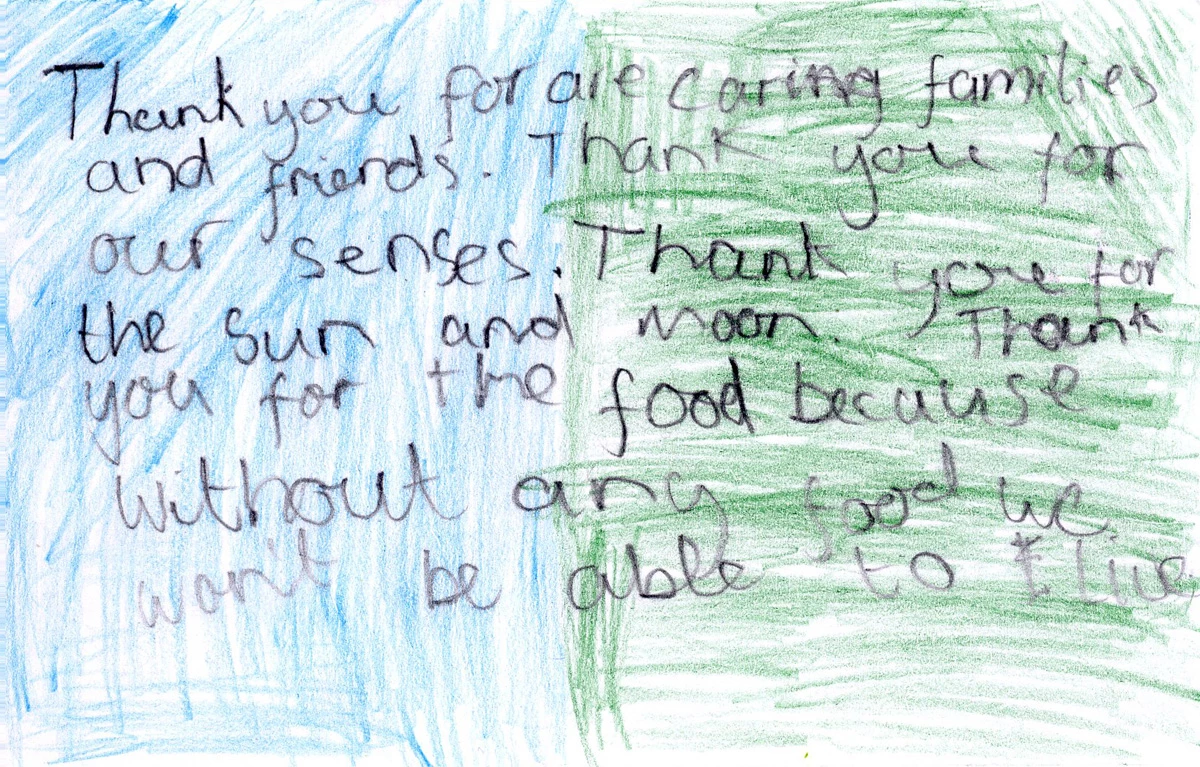 Thank you for are caring families
and friends. Thank you for
our senses. Thank you for
the sun and moon. Thank
you for the food because
without any food we
won't be able to live